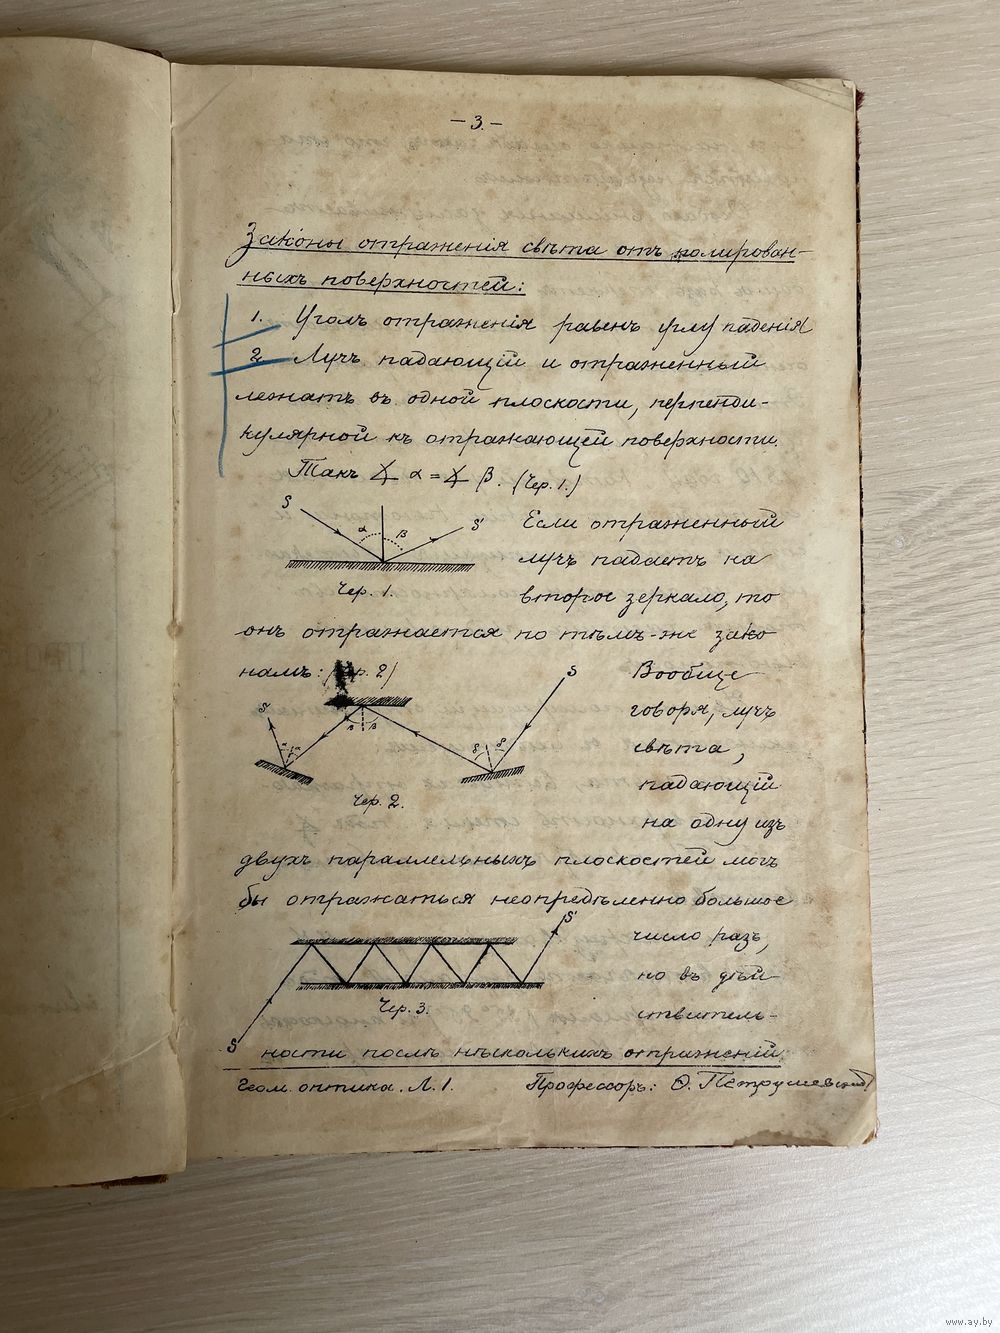 — 3. —
Законы отраженія свѣта отъ полирован-
ныхъ поверхностей:
1. Уголъ отраженія равенъ углу паденія
2 Лучъ падающій и отраженный
лежатъ въ одной плоскости, перпенди-
кулярной къ отражающей поверхности.
Такъ ∡ α = ∡ β. (Чер. 1.)
S α β S'
Чер. 1.
Если отраженный
лучъ падаетъ на
второе зеркало, то
онъ отражается по тѣмъ-же зако
намъ: (Чер. 2)
S' α α β β δ δ S
Чер. 2.
Вообще
говоря, лучъ
свѣта,
падающій
на одну изъ
двухъ параллельныхъ плоскостей могъ
бы отражаться неопредѣленно большое
S'
Чер. 3.
S
число разъ,
но въ дѣй-
ствитель-
ности послѣ нѣсколькихъ отраженій
Геом. оптика. Л. 1. Профессоръ: Ѳ. Петрушевскій
www.ay.by